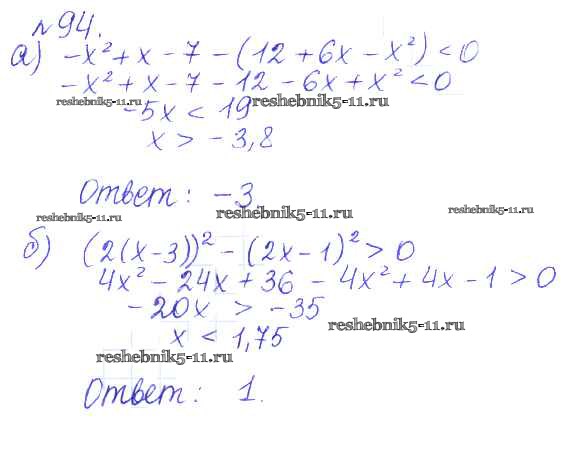 №94.
а) -x² + x - 7 - (12 + 6x - x²) < 0
-x² + x - 7 - 12 - 6x + x² < 0
reshebnik5-11.ru
-5x < 19
reshebnik5-11.ru
x > -3,8
Ответ: -3
reshebnik5-11.ru
reshebnik5-11.ru
reshebnik5-11.ru
б) (2(x-3))² - (2x-1)² > 0
4x² - 24x + 36 - 4x² + 4x - 1 > 0
-20x > -35
x < 1,75
reshebnik5-11.ru
reshebnik5-11.ru
Ответ: 1.